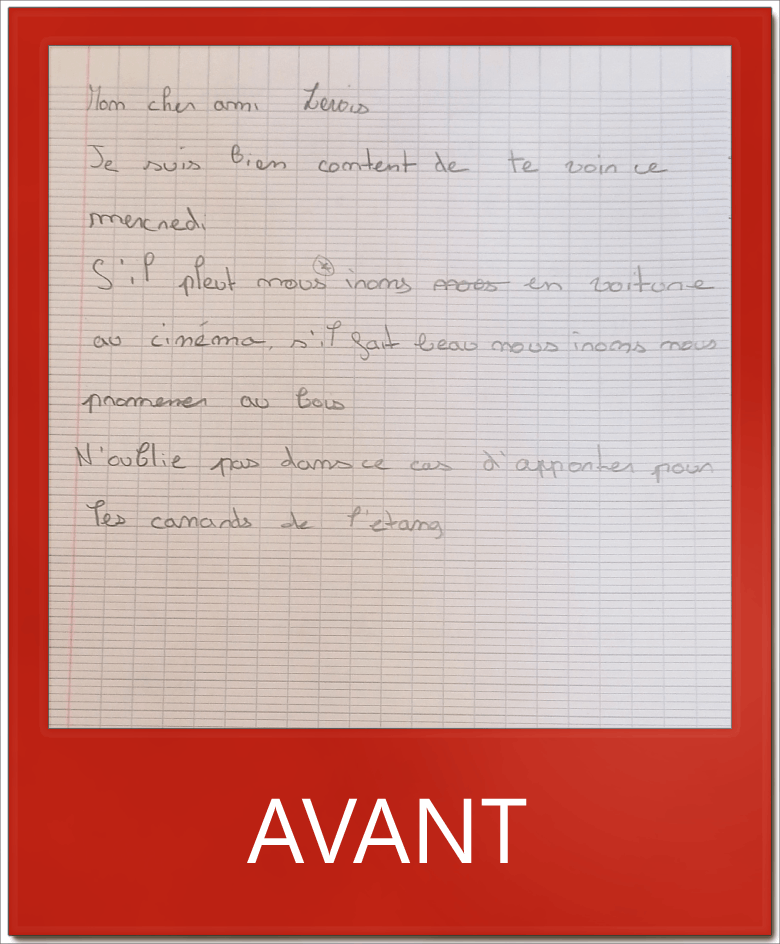 Mon cher ami
Je suis bien content de te voir ce
mercredi
S'il pleut nous irons en voiture
au cinéma, s'il fait beau nous irons nous
promener au bois
N'oublie pas dans ce cas d'apporter pour
les canards de l'etang
AVANT